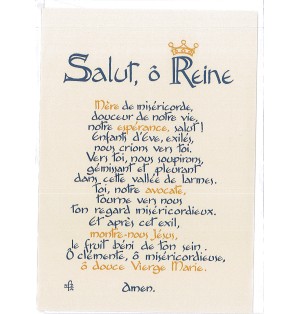 Salut, ô Reine
Mère de miséricorde,
douceur de notre vie,
notre espérance, salut !
Enfants d'Ève, exilés,
nous crions vers toi.
Vers toi, nous soupirons,
gémissant et pleurant
dans cette vallée de larmes.
Toi, notre avocate,
tourne vers nous
ton regard miséricordieux.
Et après cet exil,
montre-nous Jésus,
le fruit béni de ton sein.
Ô clémente, ô miséricordieuse,
ô douce Vierge Marie.
Amen.